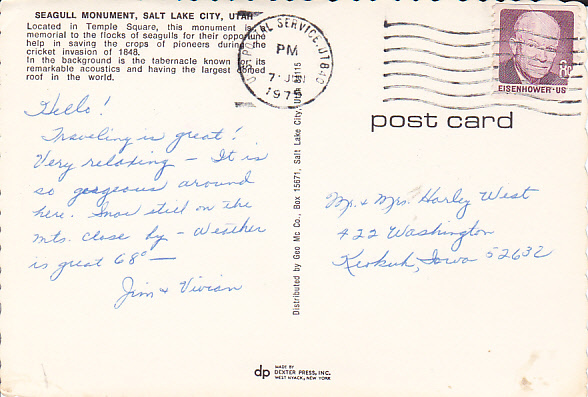 SEAGULL MONUMENT, SALT LAKE CITY, UTAH
Located in Temple Square, this monument is a
memorial to the flocks of seagulls for their opportune
help in saving the crops of pioneers during the
cricket invasion of 1848.
In the background is the tabernacle known for its
remarkable acoustics and having the largest domed
roof in the world.
Hello!
Traveling is great!
Very relaxing – It is
so gorgeous around
here. Snow still on the
mts. close by – Weather
is great 68° —
Jim & Vivian
Distributed by Geo Mc Co., Box 15671, Salt Lake City, 84115
U.S. POSTAL SERVICE, UT 840
PM
7 JUN
1975
8¢
EISENHOWER·US
post card
Mr. & Mrs. Harley West
422 Washington
Keokuk, Iowa 52632
dp
MADE BY
DEXTER PRESS, INC.
WEST NYACK, NEW YORK